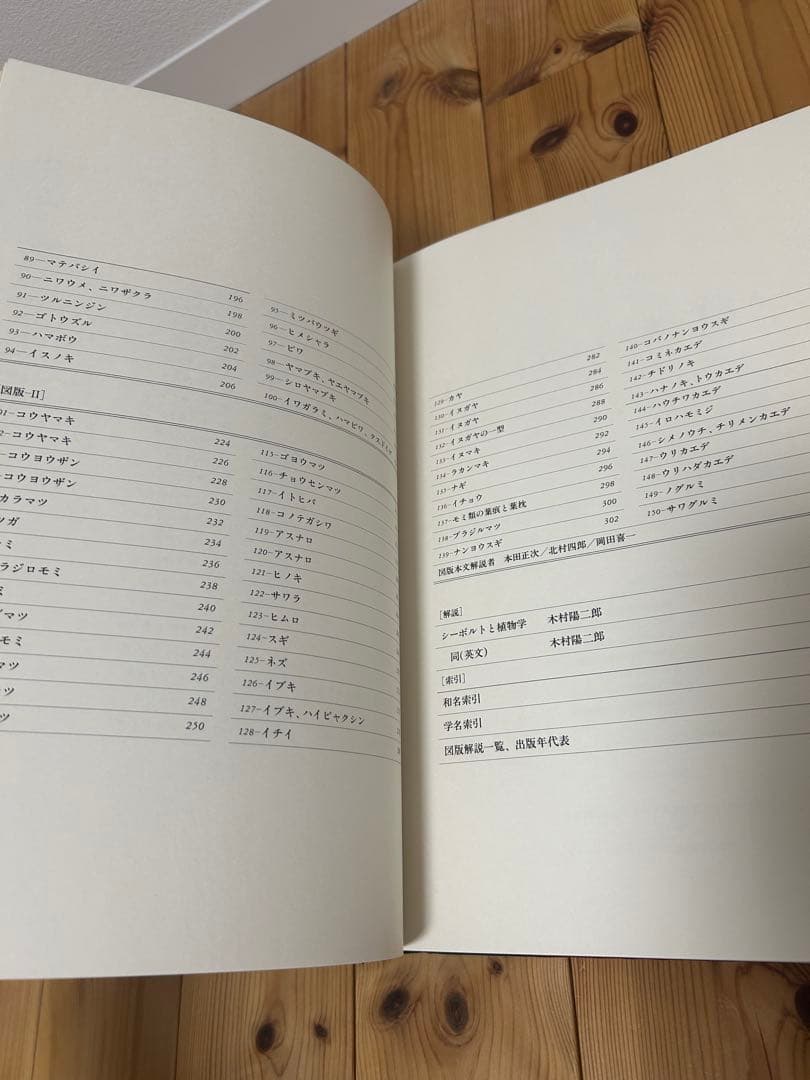 89—マテバシイ 196
90—ニワウメ、ニワザクラ 198
91—ツルニンジン 200
92—ゴトウヅル 202
93—ハマボウ 204
94—イスノキ 206
95—ミツバウツギ
96—ヒメシャラ
97—ビワ
98—ヤマブキ、ヤエヤマブキ
99—シロヤマブキ
100—イワガラミ、ハマビワ、クスドイゲ
図版-II]
01-コウヤマキ 224
コウヤマキ 226
コウヨウザン 228
コウヨウザン 230
カラマツ 232
ツガ 234
ミ 236
ラジロモミ 238
ミ 240
マツ 242
モミ 244
マツ 246
ツ 248
ツ 250
115-ゴヨウマツ
116-チョウセンマツ
117-イトヒバ
118-コノテガシワ
119-アスナロ
120-アスナロ
121-ヒノキ
122-サワラ
123-ヒムロ
124-スギ
125-ネズ
126-イブキ
127-イブキ、ハイビャクシン
128-イチイ
129-カヤ 282
130-イヌガヤ 284
131-イヌガヤ 286
132-イヌガヤの一型 288
133-イヌマキ 290
134-ラカンマキ 292
135-ナギ 294
136-イチョウ 296
137-モミ類の葉痕と葉枕 298
138-ブラジルマツ 300
139-ナンヨウスギ 302
140-コバノナンヨウスギ
141-コミネカエデ
142-チドリノキ
143-ハナノキ、トウカエデ
144-ハウチワカエデ
145-イロハモミジ
146-シメノウチ、チリメンカエデ
147-ウリカエデ
148-ウリハダカエデ
149-ノグルミ
150-サワグルミ
図版本文解説者 本田正次／北村四郎／岡田喜一
[解説]
シーボルトと植物学 木村陽二郎
同(英文) 木村陽二郎
[索引]
和名索引
学名索引
図版解説一覧、出版年代表